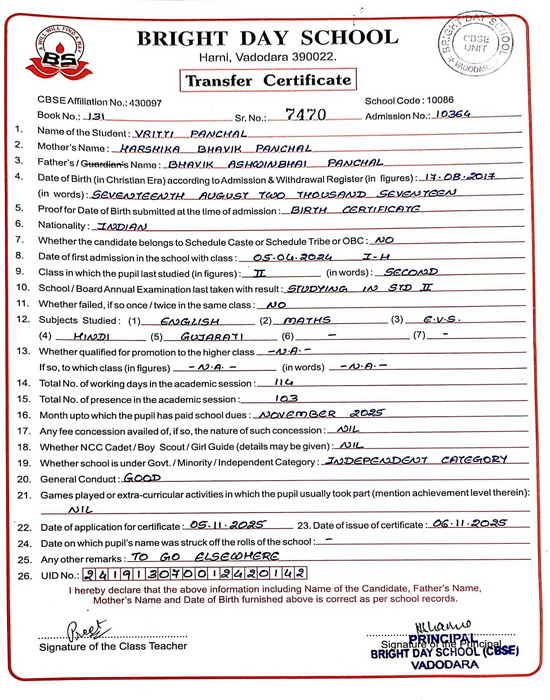 A WILL WILL FIND A WAY
BS
BRIGHT DAY SCHOOL
Harni, Vadodara 390022.
BRIGHT DAY SCHOOL
CBSE
UNIT
VADODARA
Transfer Certificate
CBSE Affiliation No.: 430097 School Code : 10086
Book No.: 131 Sr. No.: 7470 Admission No.: 10364
1. Name of the Student : VRITTI PANCHAL
2. Mother's Name : HARSHIKA BHAVIK PANCHAL
3. Father's / Guardian's Name : BHAVIK ASHWINBHAI PANCHAL
4. Date of Birth (in Christian Era) according to Admission & Withdrawal Register (in figures) : 17-08-2017
(in words) : SEVENTEENTH AUGUST TWO THOUSAND SEVENTEEN
5. Proof for Date of Birth submitted at the time of admission : BIRTH CERTIFICATE
6. Nationality : INDIAN
7. Whether the candidate belongs to Schedule Caste or Schedule Tribe or OBC : NO
8. Date of first admission in the school with class : 05-04-2024 I-H
9. Class in which the pupil last studied (in figures) : II (in words) : SECOND
10. School / Board Annual Examination last taken with result : STUDYING IN STD II
11. Whether failed, if so once / twice in the same class : NO
12. Subjects Studied : (1) ENGLISH (2) MATHS (3) E.V.S.
(4) HINDI (5) GUJARATI (6) - (7) -
13. Whether qualified for promotion to the higher class -N.A.-
If so, to which class (in figures) -N.A.- (in words) -N.A.-
14. Total No. of working days in the academic session : 114
15. Total No. of presence in the academic session : 103
16. Month upto which the pupil has paid school dues : NOVEMBER 2025
17. Any fee concession availed of, if so, the nature of such concession : NIL
18. Whether NCC Cadet / Boy Scout / Girl Guide (details may be given) : NIL
19. Whether school is under Govt. / Minority / Independent Category : INDEPENDENT CATEGORY
20. General Conduct : GOOD
21. Games played or extra-curricular activities in which the pupil usually took part (mention achievement level therein):
NIL
22. Date of application for certificate : 05-11-2025 23. Date of issue of certificate : 06-11-2025
24. Date on which pupil's name was struck off the rolls of the school : -
25. Any other remarks : TO GO ELSEWHERE
26. UID No.: 241913070012420142
I hereby declare that the above information including Name of the Candidate, Father's Name,
Mother's Name and Date of Birth furnished above is correct as per school records.
Signature of the Class Teacher
Signature of the Principal
PRINCIPAL
BRIGHT DAY SCHOOL (CBSE)
VADODARA